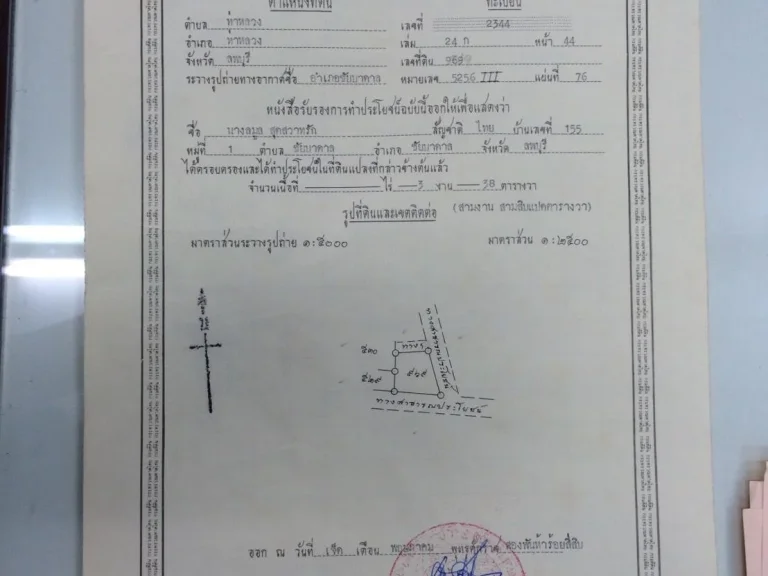 ตำแหน่งที่ดิน ทะเบียน
ตำบล ท่าหลวง เลขที่ 2344
อำเภอ ท่าหลวง เล่ม 24 ก หน้า 44
จังหวัด ลพบุรี เลขที่ดิน
ระวางรูปถ่ายทางอากาศชื่อ อำเภอชัยบาดาล หมายเลข 5256 III แผ่นที่ 76
หนังสือรับรองการทำประโยชน์ฉบับนี้ออกให้เพื่อแสดงว่า
ชื่อ นางลมูล สุดสวาทรัก สัญชาติ ไทย บ้านเลขที่ 155
หมู่ที่ 1 ตำบล ชัยบาดาล อำเภอ ชัยบาดาล จังหวัด ลพบุรี
ได้ครอบครองและได้ทำประโยชน์ในที่ดินแปลงที่กล่าวข้างต้นแล้ว
จำนวนเนื้อที่ ไร่ 3 งาน 38 ตารางวา
รูปที่ดินและเขตติดต่อ (สามงาน สามสิบแปดตารางวา)
มาตราส่วนระวางรูปถ่าย ๑:๕๐๐๐ มาตราส่วน ๑:๒๕๐๐
เหนือ
ทางสาธารณประโยชน์
ทาง
๕๓๐
๕๒๙
ทางสาธารณประโยชน์
ออก ณ วันที่ เจ็ด เดือน พฤษภาคม พุทธศักราช สองพันห้าร้อยสี่สิบ